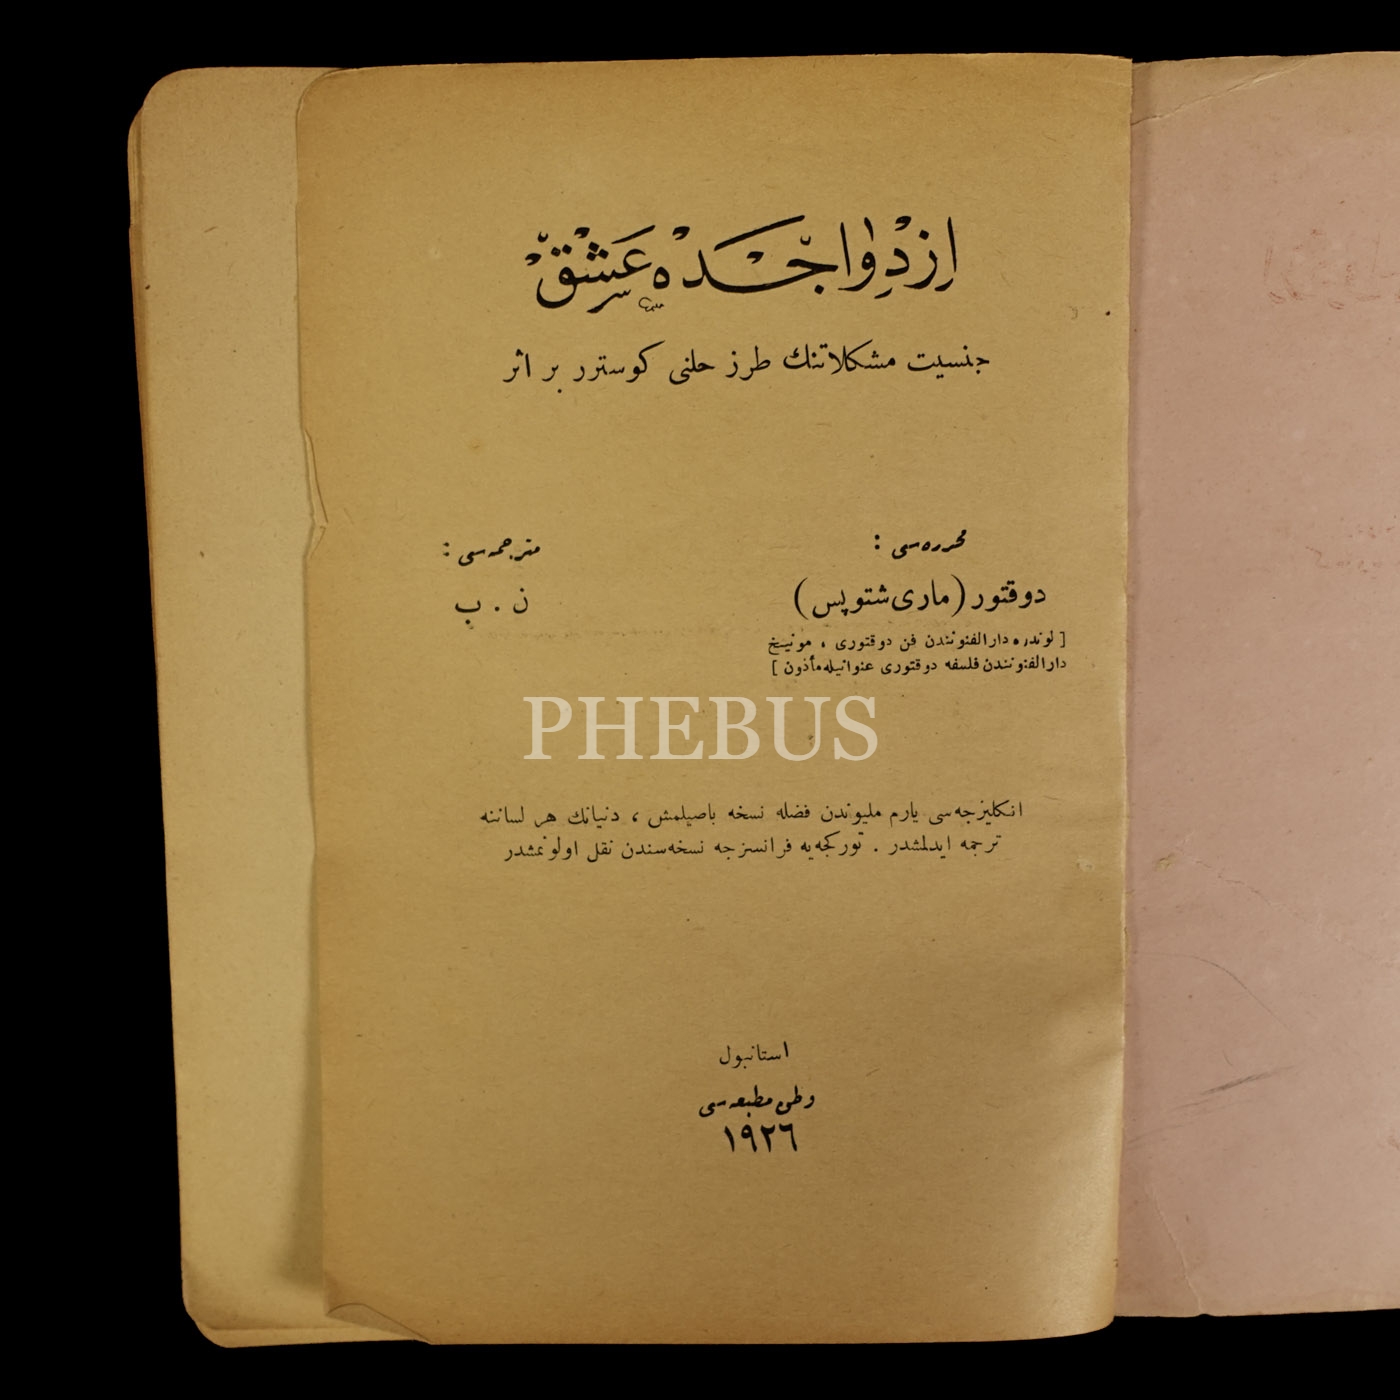 ازدواجده عشق
جنسیت مشکلاتنك طرز حلنی کوسترر بر اثر
محرره‌سی :
دوقتور (ماری شتوپس)
[ لوندره دارالفنونندن فن دوقتوری ، مونیخ
دارالفنونندن فلسفه دوقتوری عنوانیله مأذون ]
مترجمه‌سی :
ن . ب
PHEBUS
انکلیزجه‌سی یارم ملیوندن فضله نسخه باصیلمش ، دنیانك هر لساننه
ترجمه ایدلمشدر . تورکجه‌یه فرانسزجه نسخه‌سندن نقل اولونمشدر
استانبول
وطن مطبعه‌سی
١٩٢٦